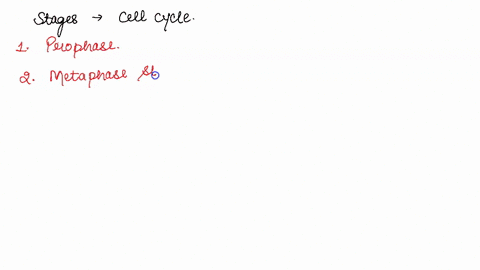 Stages → Cell cycle.
1. Prophase.
2. Metaphase